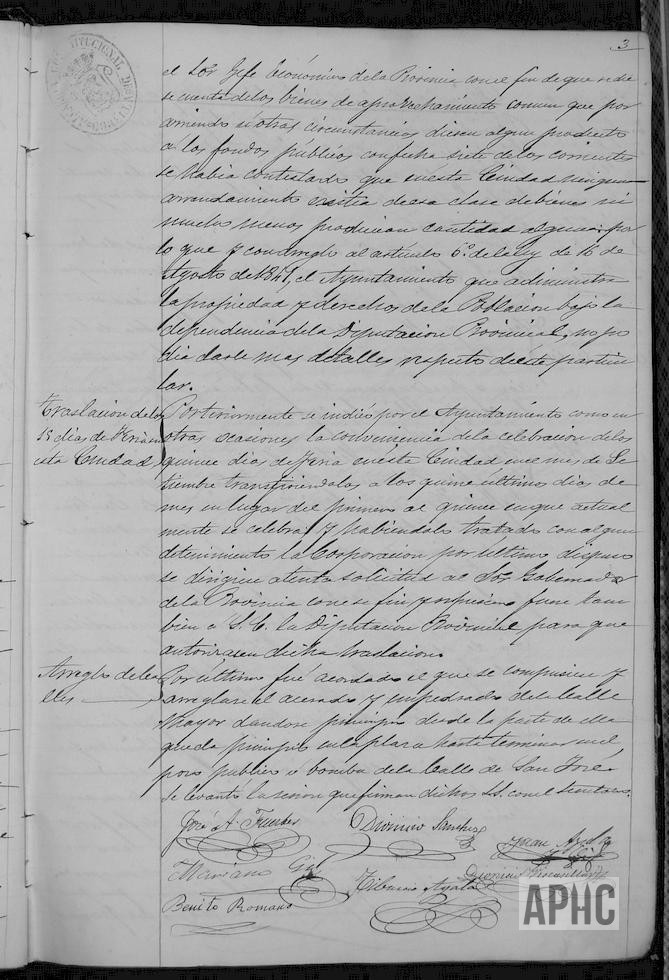 3
el Sor Gefe Económico de la Provincia con el fin de que se die
se cuenta de los bienes de aprovechamiento comun que por
arriendo ú otras circunstancias diesen algun producto
a los fondos publicos con fecha siete de los corrientes
se habia contestado que en esta Ciudad ningun
arrendamiento existia de esa clase de bienes ni
mucho menos producian cantidad alguna: por
lo que y con arreglo al articulo 6º de la ley de 16 de
Agosto de 1841, el Ayuntamiento que administra
la propiedad y derechos de la Poblacion bajo la
dependencia de la Diputacion Provincial, no po
dia darle mas detalles respecto de este particu
lar.
Traslacion de los
15 dias de Feria en
esta Ciudad
Posteriormente se indicó por el Ayuntamiento como en
otras ocasiones la conveniencia de la celebracion de los
quince dias de Feria en esta Ciudad en el mes de Se
tiembre transfiriendolos a los quince ultimos dias de
mes en lugar del primero al quince en que actual
mente se celebra y habiendolo tratado con algun
detenimiento la Corporacion por ultimo dispuso
se dirigiese atenta solicitud al Sor Gobernador
de la Provincia con ese fin y se hiciese tam
bien a S. E. la Diputacion Provincial para que
autorizasen dicha traslacion.
Arreglo de ca
lles
Por último fué acordado el que se compusiese y
arreglase el acerado y empedrado de la Calle
Mayor dandose principio desde la parte de ella
que da principio en la plaza hasta terminar en el
pozo publico ó bomba de la Calle de San José.
Se levantó la sesion que firman dichos SS. con el Secretario.
José A. Fuerdes
Dionicio Sanchez
Juan Ayala
y Gil
Mariano Gil
Tiburcio Ayala
Dionicio
Benito Romano
APHC